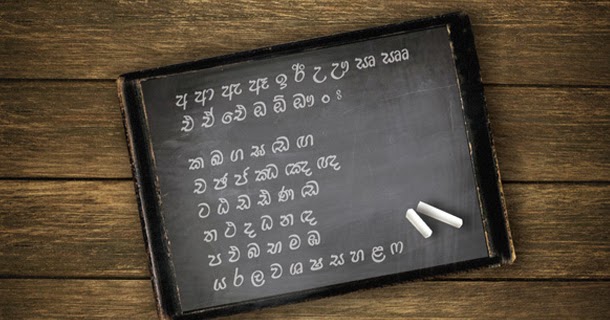 අ ආ ඇ ඈ ඉ ඊ උ ඌ ඍ ඎ
එ ඒ ඓ ඔ ඕ ඖ ං ඃ
ක ඛ ග ඝ ඞ ඟ
ච ඡ ජ ඣ ඤ ඥ
ට ඨ ඩ ඪ ණ ඬ
ත ථ ද ධ න ඳ
ප ඵ බ භ ම ඹ
ය ර ල ව ශ ෂ ස හ ළ ෆ